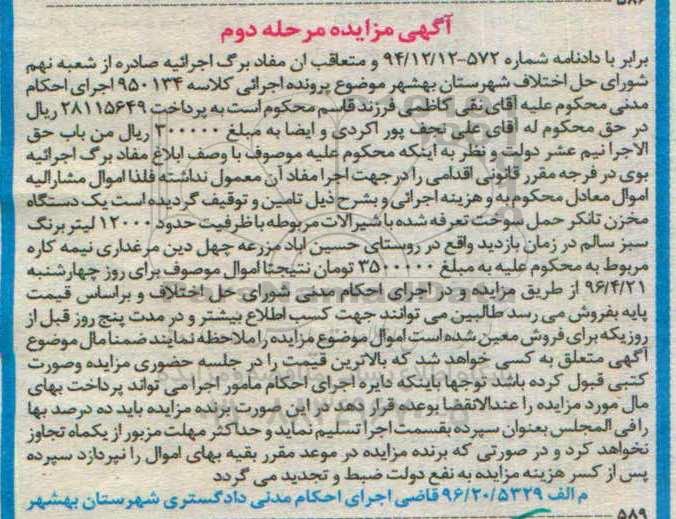 ۵۸۶
آگهی مزایده مرحله دوم
برابر با دادنامه شماره ۵۷۲-۹۴/۱۲/۱۲ و متعاقب ان مفاد برگ اجرائیه صادره از شعبه نهم
شورای حل اختلاف شهرستان بهشهر موضوع پرونده اجرائی کلاسه ۹۵۰۱۳۴ اجرای احکام
مدنی محکوم علیه آقای نقی کاظمی فرزند قاسم محکوم است به پرداخت ۲۸۱۱۵۶۴۹ ریال
در حق محکوم له آقای علی نجف پور اکردی و ایضا به مبلغ ۳۰۰۰۰۰ ریال من باب حق
الاجرا نیم عشر دولت و نظر به اینکه محکوم علیه موصوف با وصف ابلاغ مفاد برگ اجرائیه
بوی در فرجه مقرر قانونی اقدامی را در جهت اجرا مفاد آن معمول نداشته فلذا اموال مشارالیه
اموال معادل محکوم به و هزینه اجرائی و بشرح ذیل تامین و توقیف گردیده است یک دستگاه
مخزن تانکر حمل سوخت تعرفه شده با شیرالات مربوطه با ظرفیت حدود ۱۲۰۰۰ لیتر برنگ
سبز سالم در زمان بازدید واقع در روستای حسین اباد مزرعه چهل دین مرغداری نیمه کاره
مربوط به محکوم علیه به مبلغ ۳۵۰۰۰۰۰ تومان نتیجتا اموال موصوف برای روز چهارشنبه
۹۶/۴/۲۱ از طریق مزایده و در اجرای احکام مدنی شورای حل اختلاف و براساس قیمت
پایه بفروش می رسد طالبین می توانند جهت کسب اطلاع بیشتر و در مدت پنج روز قبل از
روزیکه برای فروش معین شده است اموال موضوع مزایده را ملاحظه نمایند ضمنا مال موضوع
آگهی متعلق به کسی خواهد شد که بالاترین قیمت را در جلسه حضوری مزایده وصورت
کتبی قبول کرده باشد توجها باینکه دایره اجرای احکام مامور اجرا می تواند پرداخت بهای
مال مورد مزایده را عندالانقضا بوعده قرار دهد در این صورت برنده مزایده باید ده درصد بها
را فی المجلس بعنوان سپرده بقسمت اجرا تسلیم نماید و حداکثر مهلت مزبور از یکماه تجاوز
نخواهد کرد و در صورتی که برنده مزایده در موعد مقرر بقیه بهای اموال را نپردازد سپرده
پس از کسر هزینه مزایده به نفع دولت ضبط و تجدید می گردد
م الف ۹۶/۲۰/۵۳۲۹ قاضی اجرای احکام مدنی دادگستری شهرستان بهشهر
۵۸۹